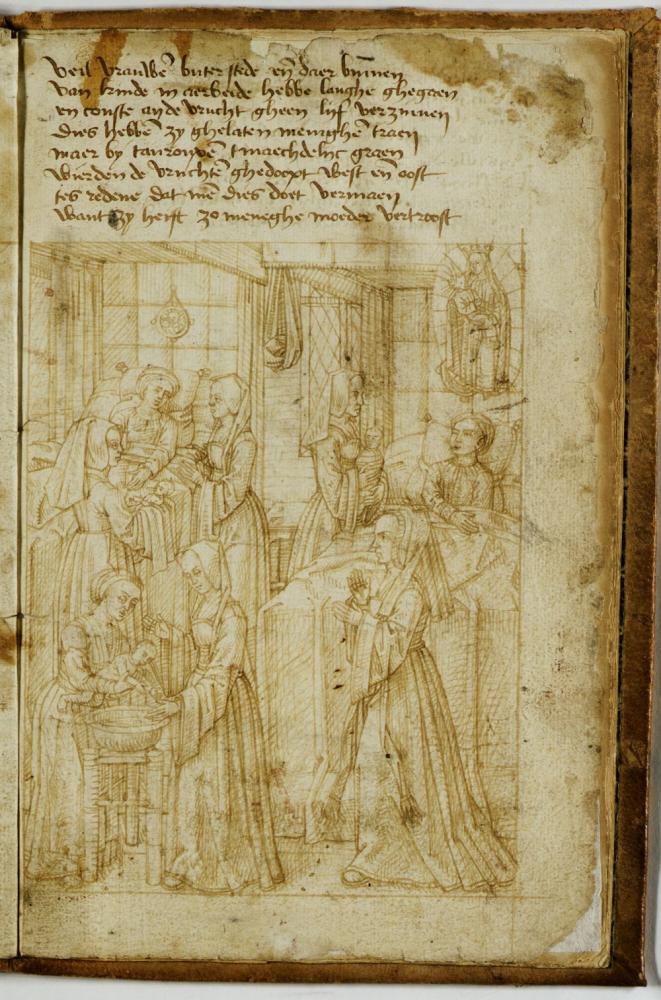 veil vrauwē buter stede en̄ daer bīnnen
van kinde in aerbeide hebbe langhe ghegaen
en conste an de vrucht gheen lijf verzinnen
dies hebbē zy ghelaten menighē traen
maer by tanroupē tmaechdelijc graen
wierden de vruchtē ghedoopt west en̄ oost
tes redene dat mē dies doet vermaen
want zy heift zo meneghe moeder vertroost